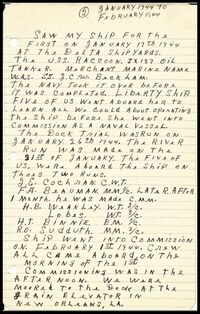 ② JANUARY 1944 TO
FEBRUARY 1944
SAW MY SHIP FOR THE
FIRST ON JANUARY 17TH 1944.
AT THE DELTA SHIPYARDS.
THE U.S.S. RACCOON. IX127 OIL
TANKER. MERCHANT MARINE NAME
WAS. SS. J.C.W. BECKAM.
THE NAVY TOOK IT OVER BEFORE
IT WAS COMPLETED. LIBERTY SHIP
FIVE OF US WENT ABOARD HER TO
LEARN ALL WE COULD ABOUT OPERATING
THE SHIP BEFORE SHE WENT INTO
COMMISSION AS A NAVAL VESSEL.
THE DOCK TRIAL WAS RUN ON
JANUARY 26TH 1944. THE RIVER
RUN WAS MADE ON THE
31ST OF JANUARY. THE FIVE OF
US WERE ABOARD THE SHIP ON
THOSE TWO RUNS.
J.E. COCHRAN. C.W.T.
W.F. BEAUMAN. MM/1c. LATER AFTER
1 MONTH HE WAS MADE C.M.M.
H.B. WEAKLEY. WT. 2/c.
LOBES. WT. 2/c.
H.T. BINNIE. EM. 1/c.
RO. SUDDUTH. MM. 2/c.
SHIP WENT INTO COMMISSION
ON FEBRUARY 1ST 1944. CREW
ALL CAME ABOARD ON THE
MORNING OF THE 1ST
COMMISSIONING WAS IN THE
AFTER NOON. WE WERE
MOORED TO THE DOCK AT THE
GRAIN ELEVATOR IN
NEW ORLEANS, LA.